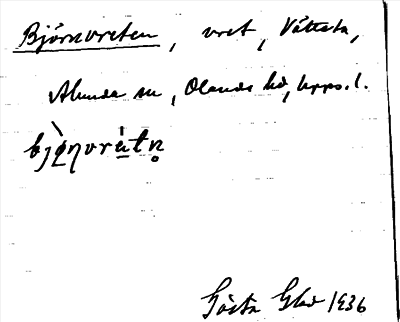 Björnvreten, vret, Vättsta,
Alunda sn, Olands hd, Upps. l.
bjø̀ṇvrètn̥
Gösta Glad 1936